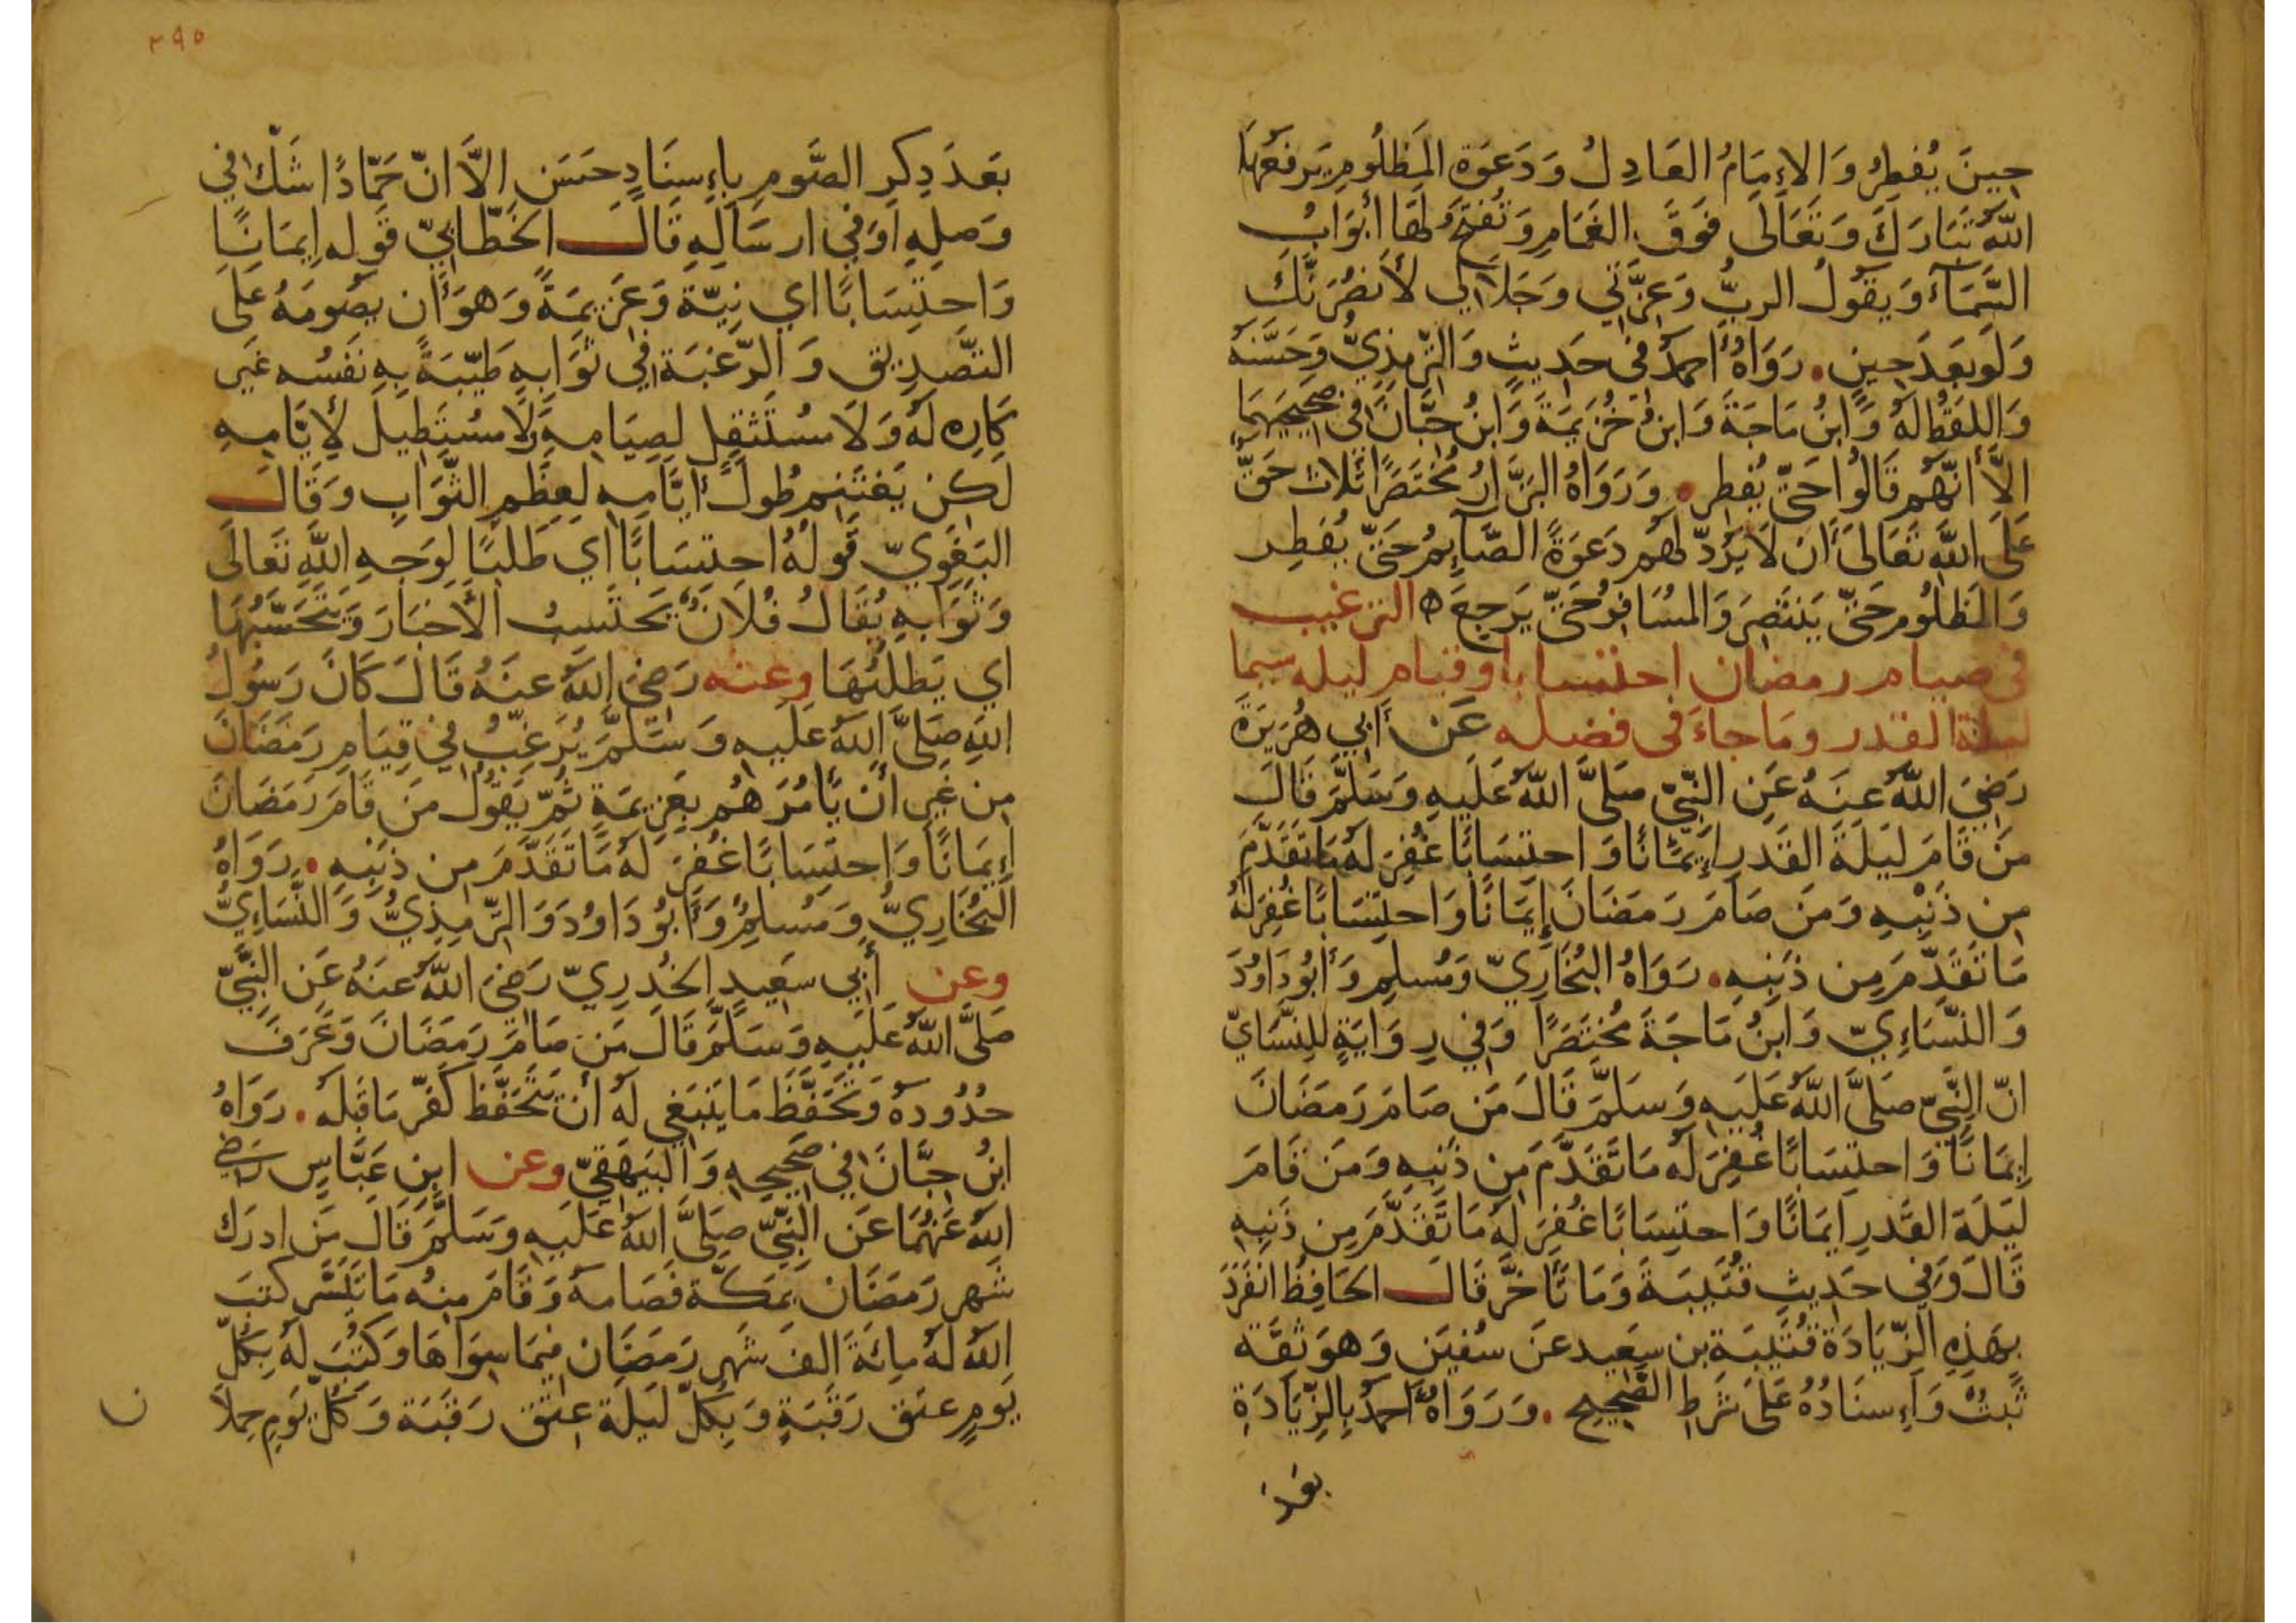 حِينَ يُفطِرُ وَالإِمَامُ العَادِلُ وَدَعوَة المَظلُومِ يَرفَعُهَا
اللّهُ تَبَارَكَ وَتَعَالَى فَوقَ الغَمَامِ وَتُفتَحُ لَهَا أبوَابُ
السَّمَآءِ وَيقُولُ الربُّ وَعِزَّتي وَجَلَالي لأنصُرَنَّكَ
وَلَو بَعدَ حِينٍ . رَوَاهُ أحمدُ في حَديثٍ وَالتّرمِذِيُّ وَحَسَّنَهُ
وَاللفظُ لَهُ وَابنُ مَاجَةَ وَابنُ خُزَيمَةَ وَابنُ حِبَّانَ في صَحِيحَيهِمَا
الاَّ انّهُم قَالُوا حَتّى يُفطِر . وَرَوَاهُ البَزَّارُ مُختَصَرًا ثَلاث حَقّ
عَلَى اللّهِ تَعَالَى أن لَا يَرُدّ لَهُم دَعوَةً الصَّايِمُ حَتّى يُفطِر
وَالمَظلُوم حَتّى يَنتَصِرَ وَالمُسَافِرُ حَتّى يَرجِعَ ه الترغيب
في صيام رمضان احتسابا وقيام ليله سيما
ليلة القدر ومَا جاءَ في فضله عَن أبي هُرَيرَةَ
رَضيَ اللّهُ عَنهُ عَنِ النّبيّ صَلَّى اللّهُ عَلَيهِ وَسَلَّمَ قَالَ
مَن قَامَ لَيلَةَ القَدرِ إيمَانًا وَاحتِسَابًا غُفِرَ لَهُ مَا تَقَدَّمَ
مِن ذَنْبِهِ وَمَن صَامَ رَمَضَانَ إيمَانًا وَاحتِسَابًا غُفِرَ لَهُ
مَا تَقَدَّمَ مِن ذَنبِهِ . رَوَاهُ البُخَارِيّ وَمُسلِم وَأبُو دَاوُدَ
وَالنَّسَاءِيّ وَابنُ مَاجَةَ مُختَصَرًا وَفي رِوَايَةٍ لِلنَّسَايّ
انّ النَّبيّ صَلَّى اللّهُ عَلَيهِ وَسَلَّمَ قَالَ مَن صَامَ رَمَضَانَ
إيمَانًا وَاحتِسَابًا غُفِرَ لَهُ مَا تَقَدَّمَ مِن ذَنبِهِ وَمَن قَامَ
لَيلَةَ القَدرِ ايمَانًا وَاحتِسَابًا غُفِرَ لَهُ مَا تَقَدَّمَ مِن ذَنبِهِ
قَالَ وَفي حَدِيثِ قُتَيبَةَ وَمَا تَأخَّرَ قَالَ الحَافِظُ انفَرَدَ
بِهَذِهِ الزّيَادَة قُتَيبَة بن سَعِيد عَن سُفيَن وَهوَ ثِقَة
ثَبتٌ وَإسنَادُهُ عَلَى شَرطِ الصَّحِيحِ . وَرَوَاهُ أحمدُ بِالزِّيَادَةِ
٢٩٥
بَعدَ ذِكرِ الصَّومِ بِإسنَادٍ حَسَن الاَّ انّ حَمَّادًا شَكّ في
وَصلِهِ أوفي ارسَالِهِ قَالَ الخَطّابيّ قَوله إيمَانًا
وَاحتِسَابًا اي نِيَّة وَعَزيمَةً وَهوَ أن يصُومَهُ عَلَى
التّصدِيق وَالرّغبَة في ثَوَابِهِ طَيّبَةً بِهِ نَفسُه غَير
كَارِهٍ لَهُ وَلَا مستَثقِل لِصِيَامِهِ وَلَا مستَطِيل لِأيّامِهِ
لَكِن يَغتَنِم طُول أيّامِهِ لِعِظَمِ الثّوَابِ وَقَالَ
البَغَوِيّ قَولُهُ احتِسَابًا اي طَلَبًا لِوَجهِ اللّهِ تَعَالَى
وَثَوَابِهِ يُقَالُ فُلَانٌ يَحتَسِبُ الأخبَارَ وَيَتَحَسَّبُهَا
اي يَطلُبُهَا وعنه رَضيَ اللّهُ عَنهُ قَالَ كَانَ رَسُولُ
اللّهِ صَلَّى اللّهُ عَلَيهِ وَسَلَّمَ يُرَغِّبُ في قِيَامِ رَمَضَانَ
مِن غَيرِ أن يَأمُرَهُم بِعَزِيمَةٍ ثُمّ يَقُولُ مَن قَامَ رَمَضَانَ
إيمَانًا وَاحتِسَابًا غُفِرَ لَهُ مَا تَقَدَّمَ مِن ذَنبِهِ . رَوَاهُ
البُخَارِيُّ وَمُسلِمُ وَأبُو دَاوُدَ وَالتّرمِذِيُّ وَالنَّسَاءِيُّ
وعن أبي سَعِيدٍ الخُدرِيّ رَضيَ اللّهُ عَنهُ عَن النَّبيّ
صَلَّى اللّهُ عَلَيهِ وَسَلَّمَ قَالَ مَن صَامَ رَمَضَانَ وَعَرَفَ
حُدُودَهُ وَتَحَفَّظَ مَا يَنبَغي لَهُ أن يَتَحَفَّظ كَفّرَ مَا قَبلَهُ . رَوَاهُ
ابنُ حِبَّانَ في صَحِيحِهِ وَالبَيهَقيّ وعن ابنِ عَبَّاسٍ رَضيَ
اللّهُ عَنهُمَا عَنِ النّبيّ صَلَّى اللّهُ عَلَيهِ وَسَلَّمَ قَالَ مَن ادرَك
شَهر رَمَضَان بمَكّةَ فَصَامَهُ وَقَامَ مِنهُ مَا تَيَسَّر كتَبَ
اللّهُ لَهُ مِائَةَ الف شَهرِ رَمَضَان فِيمَا سِوَاهَا وَكَتَبَ لَهُ بِكُلّ
يَومٍ عتق رَقَبَةٍ وَبِكُلّ لَيلَة عِتق رَقَبَة وَكُلّ يَومٍ حِملَا